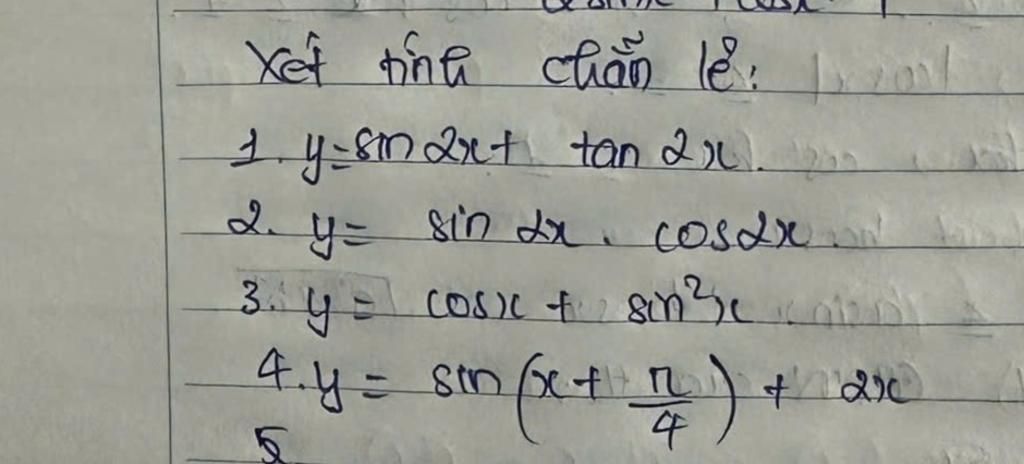 Xét tính chẵn lẻ:
1. y=sin2x+ tan 2x.
2. y= sin 2x . cos2x
3. y = cosx + sin²x
4. y = sin(x + π/4) + 2x
5